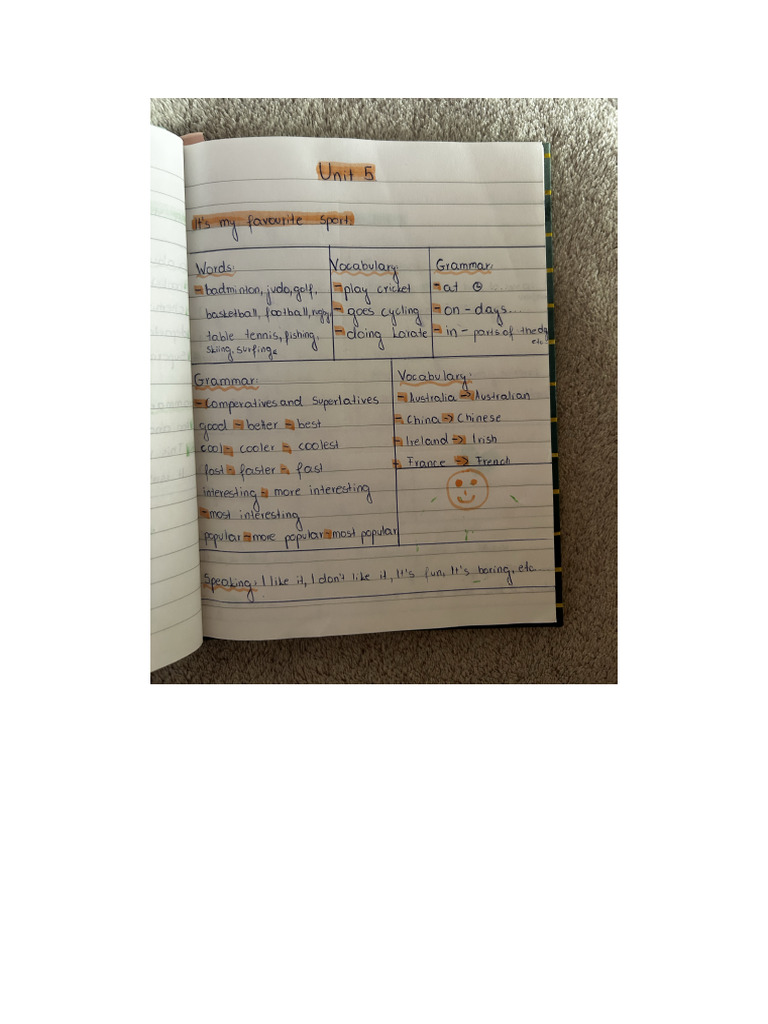 Unit 5
It's my favourite sport.
Words:
- badminton, judo, golf,
basketball, football, rugby
table tennis, fishing,
skiing, surfing
Vocabulary:
- play cricket
- goes cycling
- doing karate
Grammar:
- at
- on - days...
- in - parts of the day
etc.
Grammar:
- Comperatives and Superlatives
good - better - best
cool - cooler - coolest
fast - faster - fast
interesting - more interesting
- most interesting
popular - more popular - most popular
Vocabulary:
- Australia -> Australian
- China -> Chinese
- Ireland -> Irish
- France -> French
Speaking: I like it, I don't like it, It's fun, It's boring, etc...